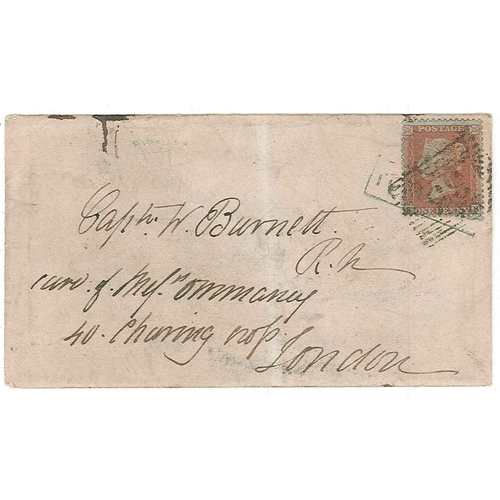 POSTAGE
ONE PENNY
Captn. W. Burnett
R.N
care of Messrs Ommaney
40. Charing Cross
London